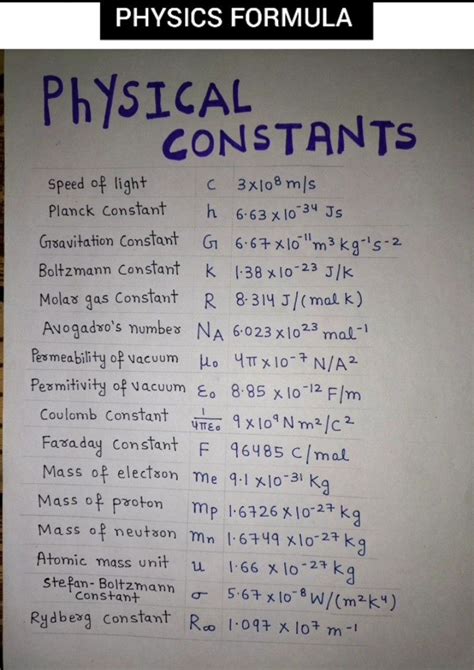 PHYSICS FORMULA
PhYSICAL
CONSTANTS
Speed of light c 3×10⁸ m/s
Planck Constant h 6.63 × 10⁻³⁴ Js
Gravitation Constant G 6.67 × 10⁻¹¹ m³ kg⁻¹ s⁻²
Boltzmann Constant K 1.38 × 10⁻²³ J/K
Molar gas Constant R 8.314 J/(mol k)
Avogadro's number NA 6.023 × 10²³ mol⁻¹
Permeability of vacuum μ₀ 4π × 10⁻⁷ N/A²
Permitivity of vacuum ε₀ 8.85 × 10⁻¹² F/m
Coulomb Constant 1/4πε₀ 9 × 10⁹ Nm²/C²
Faraday Constant F 96485 C/mol
Mass of electron me 9.1 × 10⁻³¹ Kg
Mass of proton mp 1.6726 × 10⁻²⁷ kg
Mass of neutron mn 1.6749 × 10⁻²⁷ kg
Atomic mass unit u 1.66 × 10⁻²⁷ kg
Stefan-Boltzmann
Constant σ 5.67 × 10⁻⁸ W/(m²K⁴)
Rydberg Constant R∞ 1.097 × 10⁷ m⁻¹